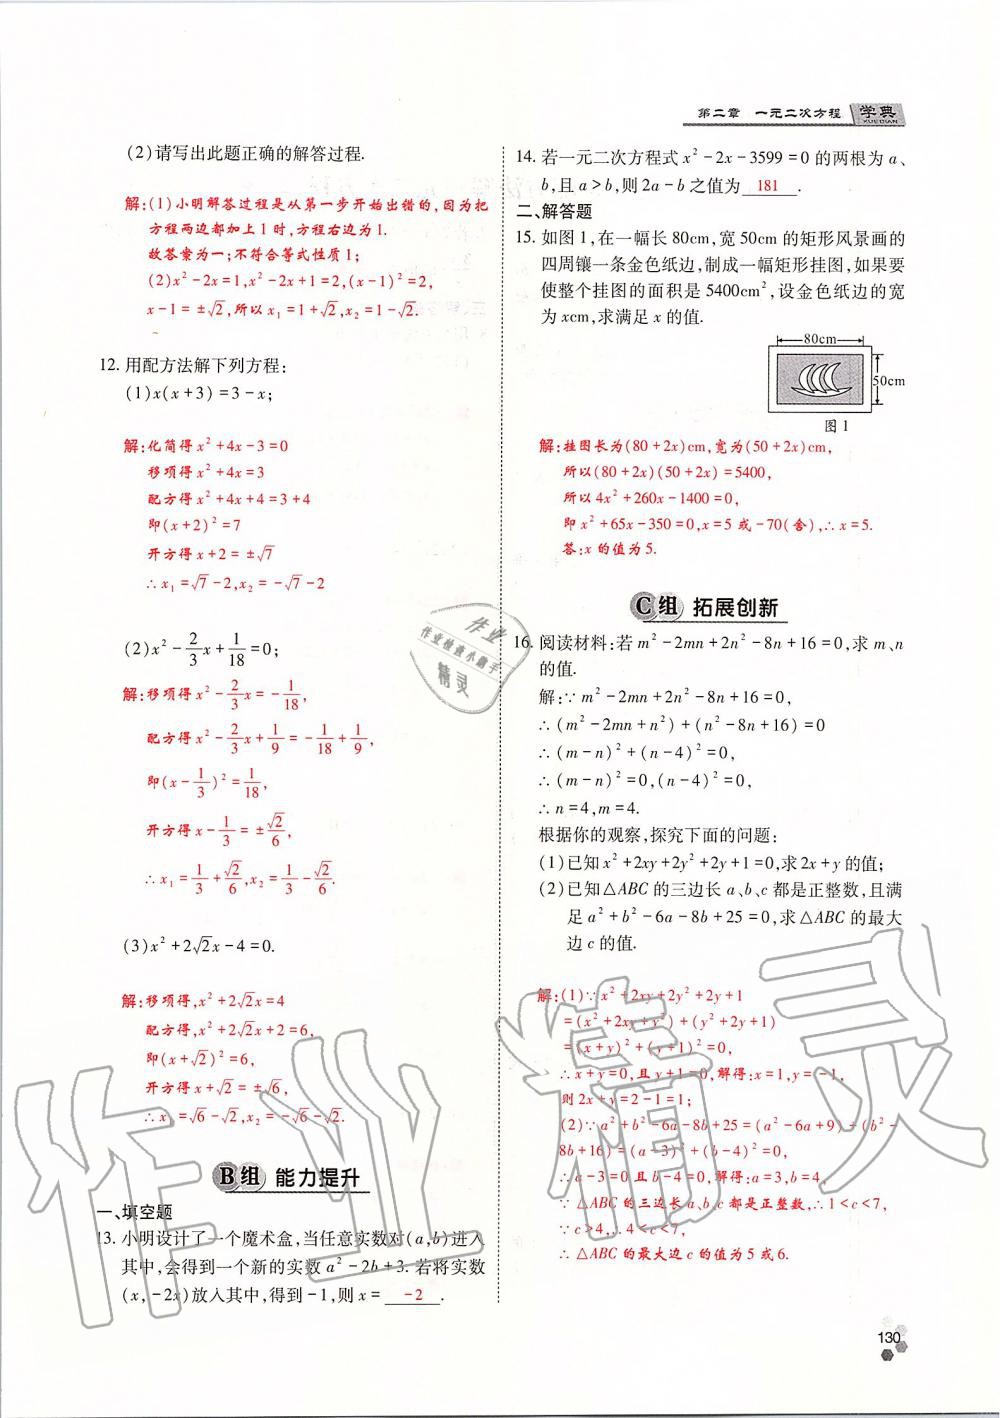 第二章 一元二次方程 学典
XUE DIAN
(2)请写出此题正确的解答过程.
解:(1)小明解答过程是从第一步开始出错的,因为把
方程两边都加上1时,方程右边为1.
故答案为一;不符合等式性质1;
(2)x²-2x=1,x²-2x+1=2,(x-1)²=2,
x-1=±√2,所以x₁=1+√2,x₂=1-√2.
12. 用配方法解下列方程:
(1)x(x+3)=3-x;
解:化简得x²+4x-3=0
移项得x²+4x=3
配方得x²+4x+4=3+4
即(x+2)²=7
开方得x+2=±√7
∴x₁=√7-2,x₂=-√7-2
(2)x²-2/3x+1/18=0;
解:移项得x²-2/3x=-1/18,
配方得x²-2/3x+1/9=-1/18+1/9,
即(x-1/3)²=1/18,
开方得x-1/3=±√2/6,
∴x₁=1/3+√2/6,x₂=1/3-√2/6.
(3)x²+2√2x-4=0.
解:移项得,x²+2√2x=4
配方得,x²+2√2x+2=6,
即(x+√2)²=6,
开方得x+√2=±√6,
∴x₁=√6-√2,x₂=-√6-√2.
B组 能力提升
一、填空题
13. 小明设计了一个魔术盒,当任意实数对(a,b)进入
其中,会得到一个新的实数a²-2b+3.若将实数
(x,-2x)放入其中,得到-1,则x= -2 .
14. 若一元二次方程式x²-2x-3599=0的两根为a、
b,且a>b,则2a-b之值为 181 .
二、解答题
15. 如图1,在一幅长80cm,宽50cm的矩形风景画的
四周镶一条金色纸边,制成一幅矩形挂图,如果要
使整个挂图的面积是5400cm²,设金色纸边的宽
为xcm,求满足x的值.
80cm
50cm
图1
解:挂图长为(80+2x)cm,宽为(50+2x)cm,
所以(80+2x)(50+2x)=5400,
所以4x²+260x-1400=0,
即x²+65x-350=0,x=5或-70(舍),∴x=5.
答:x的值为5.
C组 拓展创新
16. 阅读材料:若m²-2mn+2n²-8n+16=0,求m、n
的值.
解:∵m²-2mn+2n²-8n+16=0,
∴(m²-2mn+n²)+(n²-8n+16)=0
∴(m-n)²+(n-4)²=0,
∴(m-n)²=0,(n-4)²=0,
∴n=4,m=4.
根据你的观察,探究下面的问题:
(1)已知x²+2xy+2y²+2y+1=0,求2x+y的值;
(2)已知△ABC的三边长a、b、c都是正整数,且满
足a²+b²-6a-8b+25=0,求△ABC的最大
边c的值.
解:(1)∵x²+2xy+2y²+2y+1
=(x²+2xy+y²)+(y²+2y+1)
=(x+y)²+(y+1)²=0,
∴x+y=0,且y+1=0,解得:x=1,y=-1,
则2x+y=2-1=1;
(2)∵a²+b²-6a-8b+25=(a²-6a+9)+(b²-
8b+16)=(a-3)²+(b-4)²=0,
∴a-3=0且b-4=0,解得:a=3,b=4,
∵△ABC的三边长a、b、c都是正整数,∴1<c<7,
∵c>4,∴4<c<7,
∴△ABC的最大边c的值为5或6.
130
作业
作业检查小助手
精灵
作业精灵